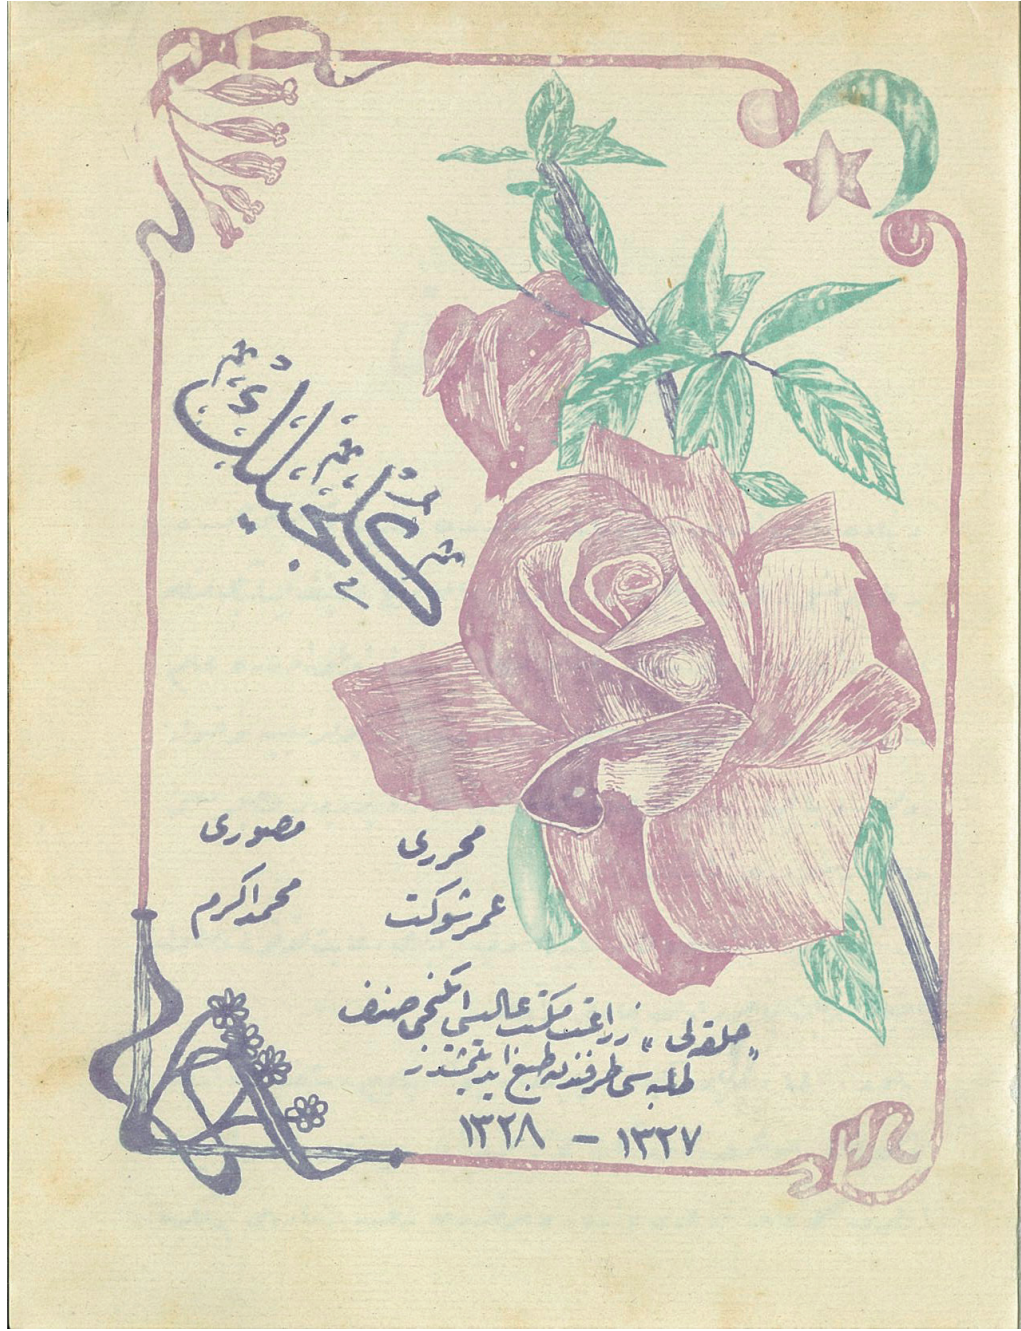 گلجیلك
محرری
عمر شوكت
مصوری
محمد اكرم
"حلقه‌لی" زراعت مكتب عالیسی ایكنجی صنف
طلبه‌سی طرفندن طبع ایدیلمشدر
١٣٢٧ – ١٣٢٨